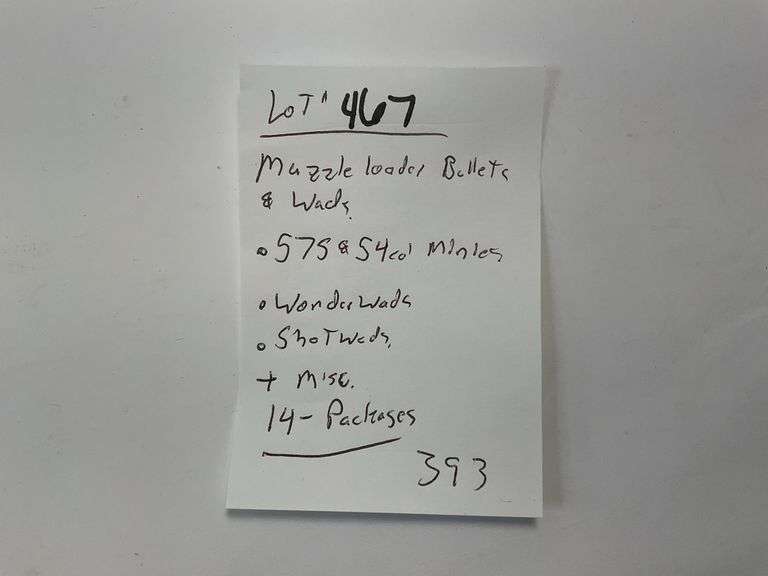 LOT' 467
Muzzleloader Bullets
& Wads
• 575 & 54cal Minies
• WonderWads
• ShotWads
+ Misc.
14 - Packages
393